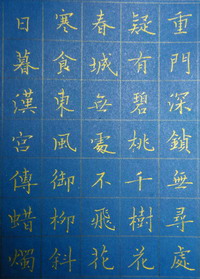 重門深鎖無尋處
疑有碧桃千樹花
春城無處不飛花
寒食東風御柳斜
日暮漢宮傳蜡燭